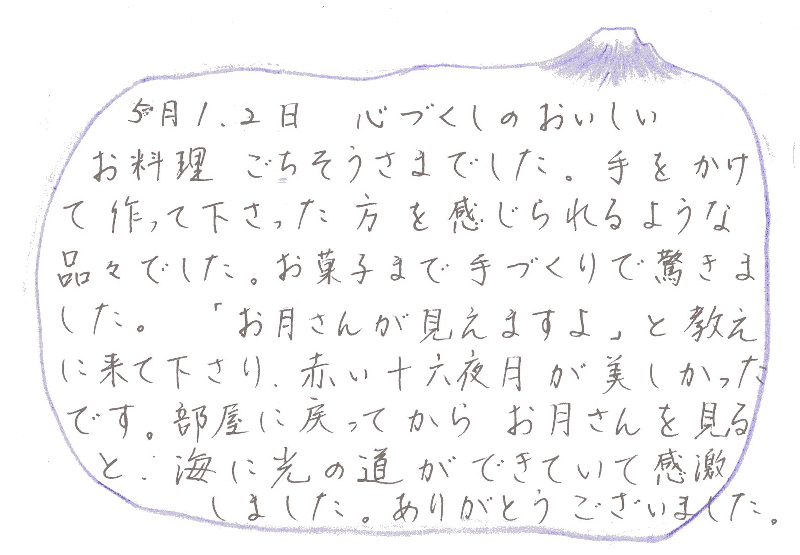 5月1.2日 心づくしのおいしい
お料理 ごちそうさまでした。手をかけ
て作って下さった方を感じられるような
品々でした。お菓子まで手づくりで驚きま
した。 「お月さんが見えますよ」と教え
に来て下さり、赤い十六夜月が美しかった
です。部屋に戻ってから お月さんを見る
と、海に光の道ができていて感激
しました。ありがとうございました。